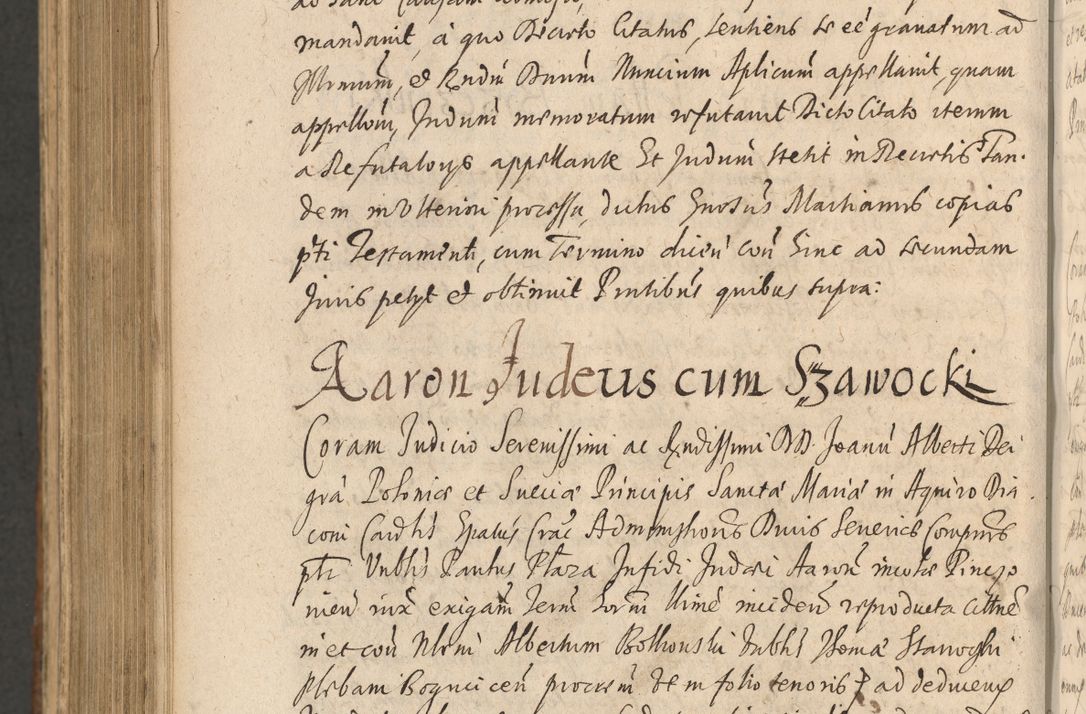 mandavit, a quo Decreto Citatus, sentiens se eē gravatum ad
Illrmum, et Rndm̄ Dnum̄ Nuncium Aplicum̄ appellavit, quam
appellom̄, Judum̄ memoratum refutavit Dicto Citato iterum
a Refutatorijs appellante Et Judum̄ stetit in Decretis Tan-
dem in Ulteriori processu, dictus Gnosūs Martianus copias
pt̄i Testamenti, cum Termino dicen̄ con̄ hinc ad secundam
Juris petyt et obtinuit Prntibus̄ quibus supra:
Aaron Judeus cum Szawocki
Coram Judicio Serenissimi ac Rndissimi DD Joanni Alberti Dei
grā Poloniæ et Sueciæ Principis Sanctæ Mariæ in Aquiro Dia
coni Cardlis̄ Epatus̄ Crac̄ Adminshoris̄ Ducis Severiæ Comprns̄
pt̄i Nublis̄ Pantus Plaza Infidi Judæi Aaron̄ incolæ Pinczo
vien̄ iux̄ exigam̄ Term̄ horm̄ Ulme inciden̄ reproducta Cittne
in et con̄ Nlem̄ Albertum Bolkouski Nublis̄ Thomæ Stawoski
plebam Bogucicen̄ procrem̄ de in folio tenoris ad deducens